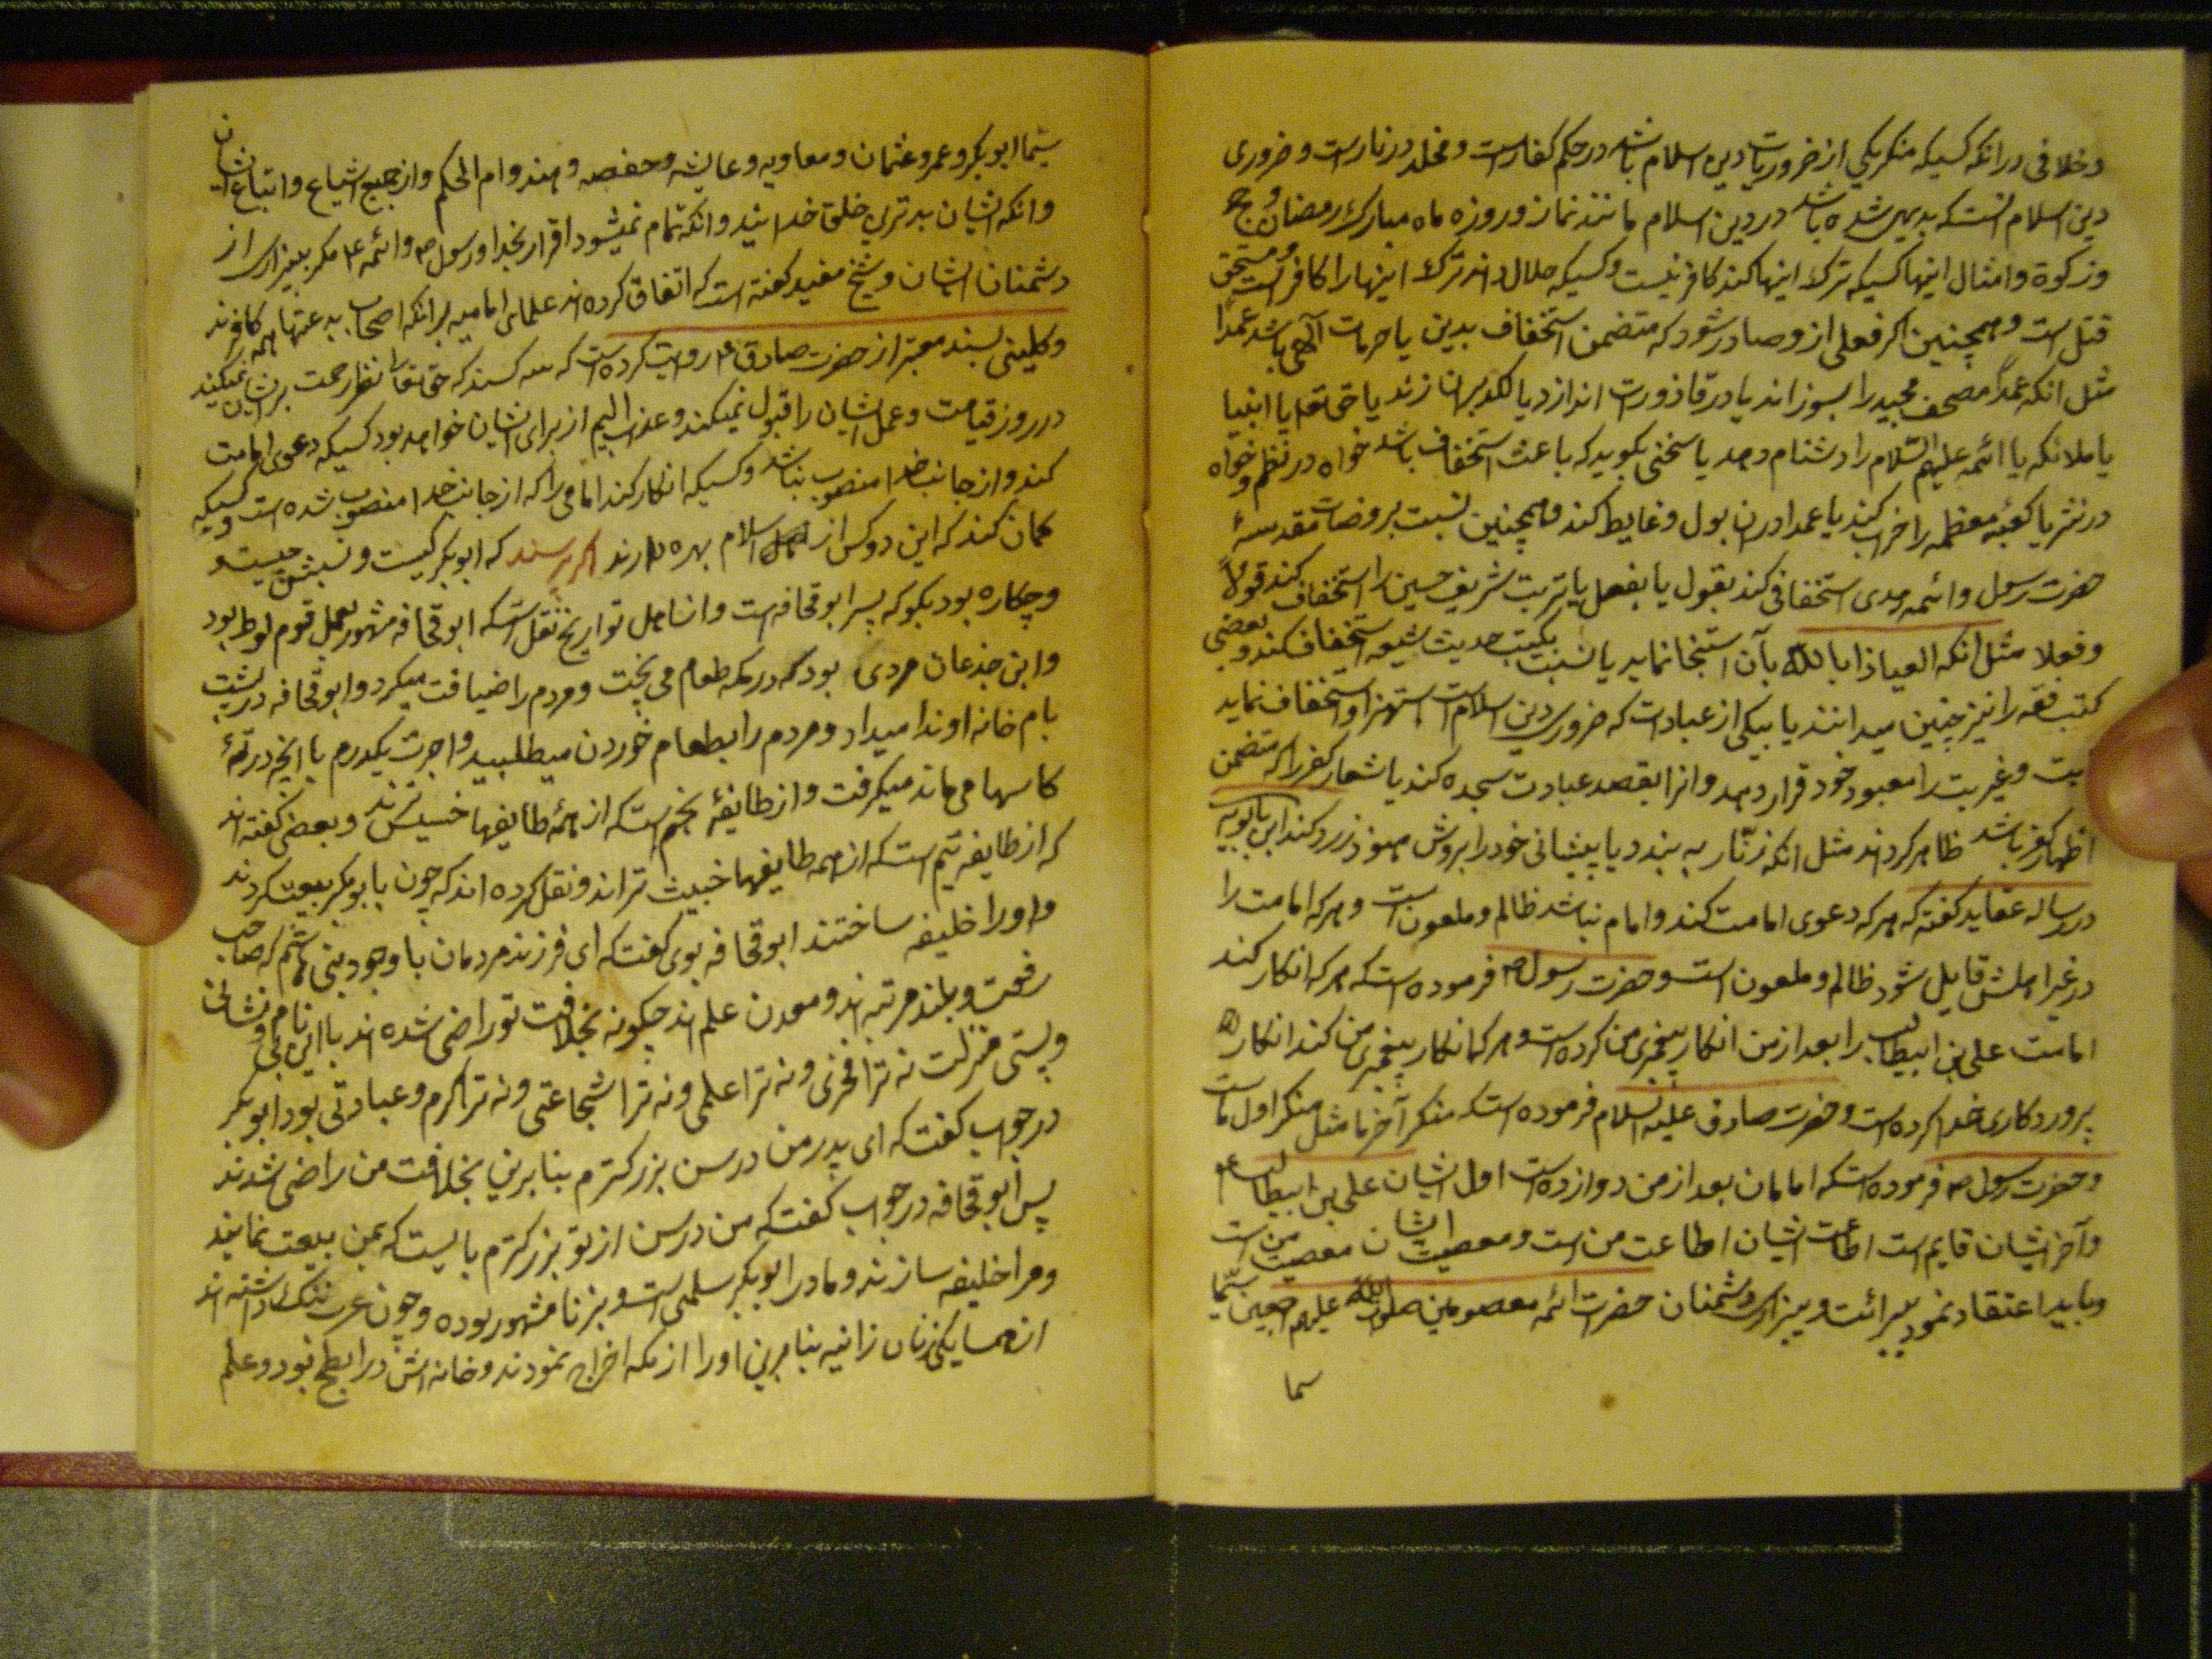 وخلافی درانکه کسیکه منکر یکی از ضروریات دین اسلام باشد در حکم کفار است و مخلد در نار است و ضروری
دین اسلام انست که بدیهی شده باشد در دین اسلام مانند نماز و روزه ماه مبارک رمضان و حج
وزکوة وامثال اینها کسیکه ترک اینها کند کافر نیست وکسیکه حلال داند ترک اینها را کافر است و مستحق
قتل است و همچنین اکر فعلی ازو صادر شود که متضمن استخفاف بدین یا حرمات آلهی باشد عمداً
مثل انکه عمداً مصحف مجید را بسوزاند یا در قاذورات اندازد یا لکد بران زند یا حق تعا یا انبیا
یا ملائکه یا ائمه علیهم السلام را دشنام دهد یا سخنی بکوید که باعث استخفاف باشد خواه در نظم و خواه
در نثر یا کعبهٔ معظمه را خراب کند یا عمدا دران بول و غایط کند و همچنین نسبت بروضات مقدسهٔ
حضرت رسول و ائمه هدی استخفافی کند بقول یا بفعل یا تربت شریف حسین را استخفاف کند قولاً
وفعلا مثل انکه العیاذا بالله بآن استنجا نماید یا نسبت بکتب حدیث شیعه استخفاف کند و بعضی
کتب فقه را نیز چنین میدانند یا بیکی از عبادات که ضروری دین اسلام است استهزا و استخفاف نماید
بت و غیر بت را معبود خود قرار دهد وانرا بقصد عبادت سجده کند یا شعار کفر را که متضمن
اظهار کفر باشد ظاهر کرداند مثل انکه زنّار به بندد یا پیشانی خود را بروش هنود زرد کند ابن بابویه
در رساله عقاید کفته که هر که دعوی امامت کند و امام نباشد ظالم و ملعون است و هر که امامت را
در غیر اهلش قایل شود ظالم و ملعون است و حضرت رسول ص فرموده است که هر که انکار کند
امامت علی بن ابیطالب را بعد از من انکار پیغمبری من کرده است و هر که انکار پیغمبری من کند انکار
پروردکاری خدا کرده است و حضرت صادق علیه السلام فرموده است که منکر آخر ما مثل منکر اول ما است
و حضرت رسول ص فرموده است که امامان بعد از من دوازده است اول ایشان علی بن ابیطالب ع
وآخر ایشان قایم است اطاعت ایشان اطاعت من است و معصیت ایشان معصیت من است
وباید اعتقاد نمود ببرائت و بیزاری دشمنان حضرت ائمه معصومین صلوات الله علیهم اجمعین سیّما
سیما
سیما ابوبکر و عمر و عثمان و معاویه و عایشه و حفصه و هند و ام الحکم و از جمیع اشیاع و اتباع ایشان
وانکه ایشان بدترین خلق خدایند وانکه تمام نمیشود اقرار بخدا ورسول ص وائمه ع مکر ببیزاری از
دشمنان ایشان و شیخ مفید کفته است که اتفاق کرده اند علمای امامیه برانکه اصحاب بدعتها همه کافرند
وکلینی بسند معتبر از حضرت صادق ع روایت کرده است که سه کسند که حق تعا نظر رحمت برایشان نمیکند
در روز قیامت و عمل ایشان را قبول نمیکند و عذاب الیم از برای ایشان خواهد بود کسیکه دعوی امامت
کند و از جانب خدا منصوب نباشد و کسیکه انکار کند امامی را که از جانب خدا منصوب شده است و کسیکه
کمان کند که این دو کس از اهل اسلام بهره دارند اکر پرسند که ابوبکر کیست و نسبش چیست و
وچکاره بود بکو که پسر ابوقحافه است و از اهل تواریخ نقل است که ابوقحافه مشهور بعمل قوم لوط بود
وابن جذعان مردی بود که در مکه طعام می پخت و مردم را ضیافت میکرد و ابوقحافه در پشت
بام خانه او ندا میداد و مردم را بطعام خوردن میطلبید و اجرت یکدرم با انچه در تهٔ
کاسها می ماند میکرفت و از طایفهٔ است که از همهٔ طایفها خسیس ترند و بعضی کفته اند
که از طایفه تیم است که از همه طایفها خبیث تر اند و نقل کرده اند که چون بابوبکر بیعت کردند
واورا خلیفه ساختند ابوقحافه بوی کفت که ای فرزند مردمان با وجود بنی هاشم که صاحب
رفعت و بلند مرتبه اند و معدن علم اند چکونه بخلافت تو راضی شده اند با این بی نام و نشانی
وپستی منزلت نه ترا فخری و نه ترا علمی و نه ترا شجاعتی و نه ترا کرم و عبادتی بود ابوبکر
در جواب کفت که ای پدر من در سن بزرکترم بنابرین بخلافت من راضی شدند
پس ابوقحافه در جواب کفت که من در سن از تو بزرکترم بایست که بمن بیعت نمایند
ومرا خلیفه سازند و مادر ابوبکر سلمی است و بزنا مشهور بوده و چون عرب ننک داشته اند
از همسایکی زنان زانیه بنابرین اورا از مکه اخراج نمودند و خانه اش در ابطح بود و علم